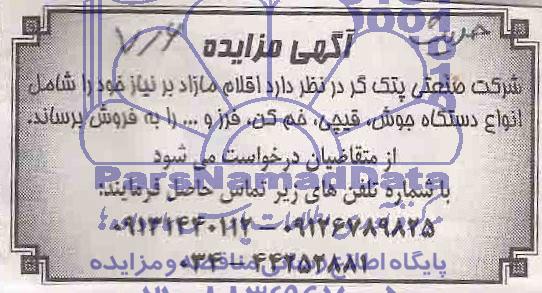 آگهی مزایده
شرکت صنعتی پتک گر در نظر دارد اقلام مازاد بر نیاز خود را شامل
انواع دستگاه جوش، قیچی، خم کن، فرز و ... را به فروش برساند.
از متقاضیان درخواست می شود
ParsNamadData
با شماره تلفن های زیر تماس حاصل فرمایند:
۰۹۱۲۶۷۸۹۸۲۵ – ۰۹۱۳۱۴۴۰۱۱۲
۰۳۴ – ۴۴۲۵۲۸۸۱
پایگاه اطلاع رسانی مناقصه و مزایده